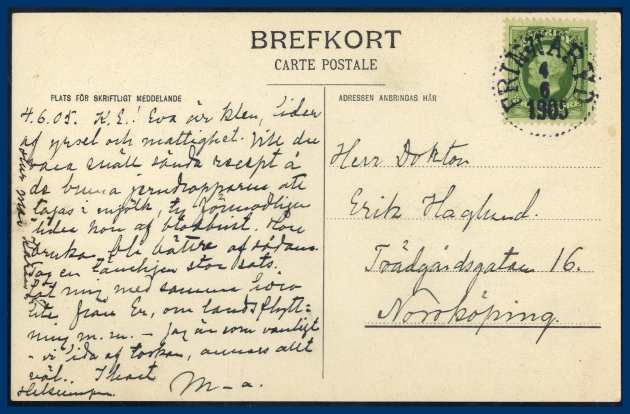 BREFKORT
CARTE POSTALE
PLATS FÖR SKRIFTLIGT MEDDELANDE
ADRESSEN ANBRINGAS HÄR
FRINNARYD
4
6
1905
4.6.05. K.E.! Eva är klen, lider
af yrsel och mattighet. Vill du
vara snäll sända recept å
de bruna järndropparna att
tagas i mjölk, ty förmodligen
lider hon af blodbrist. Hon
brukar bli bättre af sådana.
Tag en tämligen stor sats.
Låt mig med samma höra
lite från Er, om landsflytt-
ning m.m. – Jag är som vanligt
– vi lida af torkan, annars allt
väl. I hast
M–a.
Herr Doktor
Erik Haglund.
Trädgårdsgatan 16.
Norrköping.